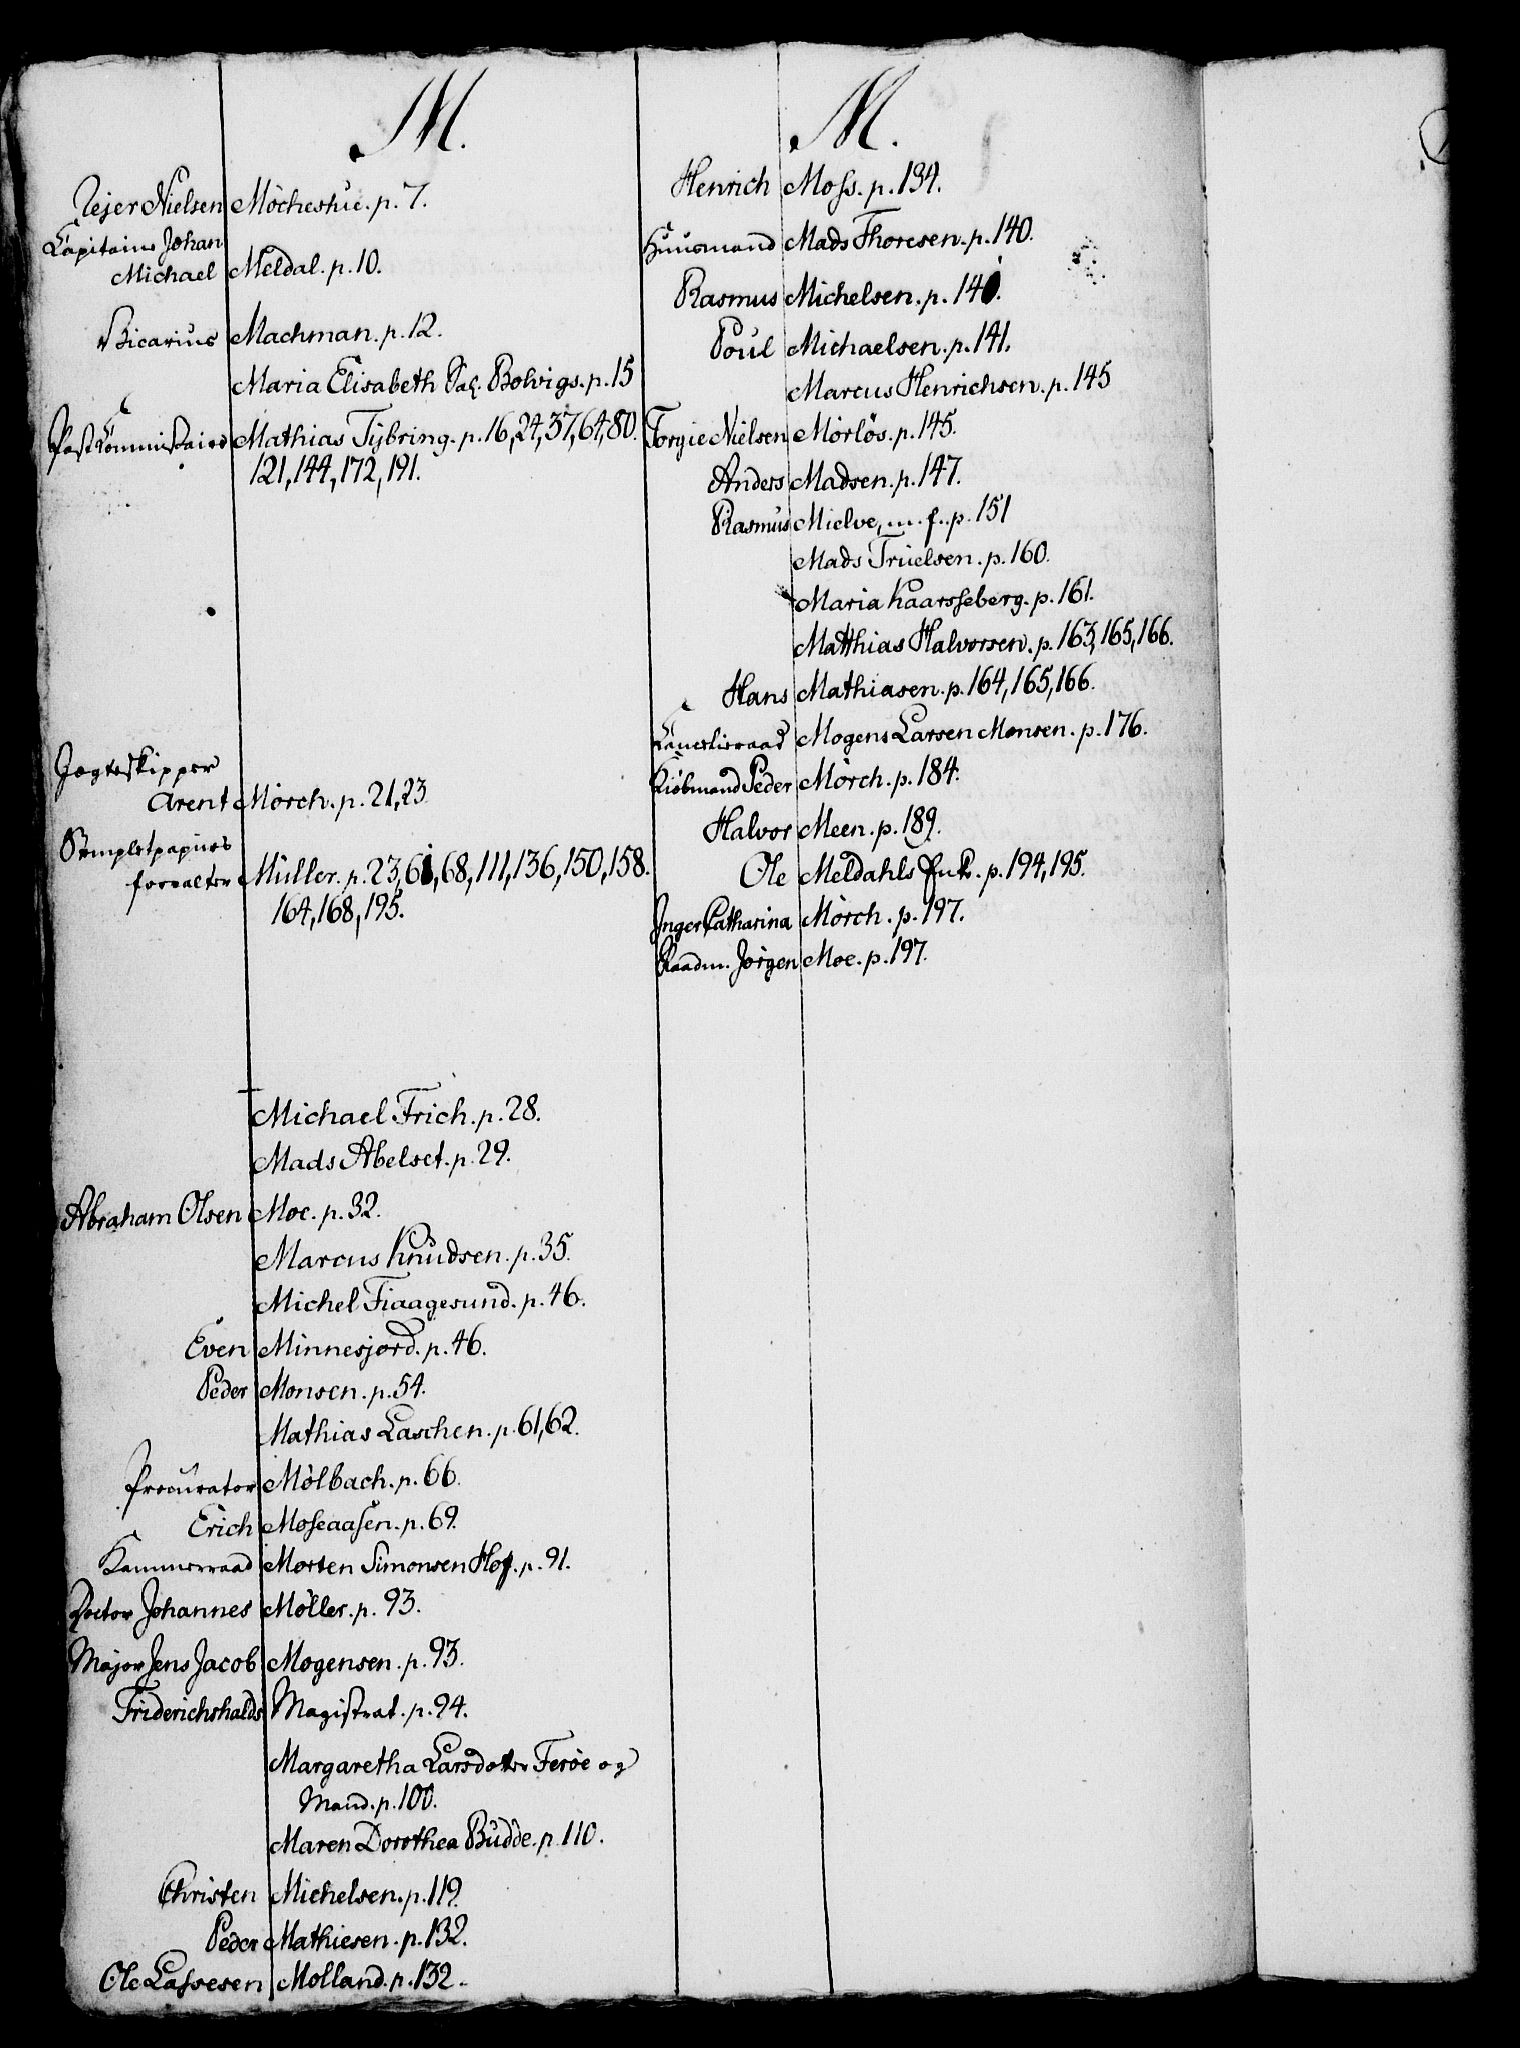 M.
Tejer Nielsen Möcheshue. p. 7.
Capitaine Johan
Michael Meldal. p. 10.
Vicarius Machman. p. 12.
Maria Elisabeth Sal. Bolvigs. p. 15
PostCommissaire Mathias Tÿbring. p. 16, 24, 37, 64, 80.
121, 144, 172, 191.
Jagteskipper
Arent Mörch. p. 21, 23
Stempletpapiirs
forvalter Müller. p. 23, 61, 68, 111, 136, 150, 158.
164, 168, 195.
Michael Frich. p. 28.
Mads Abelset. p. 29.
Abraham Olsen Moe. p. 32.
Marcus Knudsen. p. 35.
Michel Fiaagesund. p. 46.
Even Minnesjord. p. 46.
Peder Monsen. p. 54.
Mathias Laschen. p. 61, 62.
Procurator Mölbach. p. 66.
Erich Moseaasen. p. 69.
Kammerraad Morten Simonsen Hof. p. 91.
Doctor Johannes Möller. p. 93.
Major Jens Jacob Mogensen. p. 93.
Friderichshalds Magistrat. p. 94.
Margaretha Larsdotter Feröe og
Mand. p. 100.
Maren Dorothea Budde. p. 110.
Christen Michelsen. p. 119.
Peder Mathiesen. p. 132.
Ole Lassesen Molland. p. 132.
M.
Henrich Moss. p. 134.
Huusmand Mads Thoresen. p. 140.
Rasmus Michelsen. p. 140.
Poul Michaelsen. p. 141.
Marcus Henrichsen. p. 145
Torgie Nielsen Mörlös. p. 145.
Anders Madsen. p. 147.
Rasmus Mielve, m. f. p. 151
Mads Truelsen. p. 160.
Maria Kaarsseberg. p. 161.
Matthias Halvorsen. p. 163, 165, 166.
Hans Mathiasen. p. 164, 165, 166.
Cancelieraad Mogens Larsen Monsen. p. 176.
Kiöbmand Peder Mörch. p. 184.
Halvor Meen. p. 189.
Ole Meldahls Enke. p. 194, 195.
Inger Catharina Mörch. p. 197.
Raadm. Jörgen Moe. p. 197.